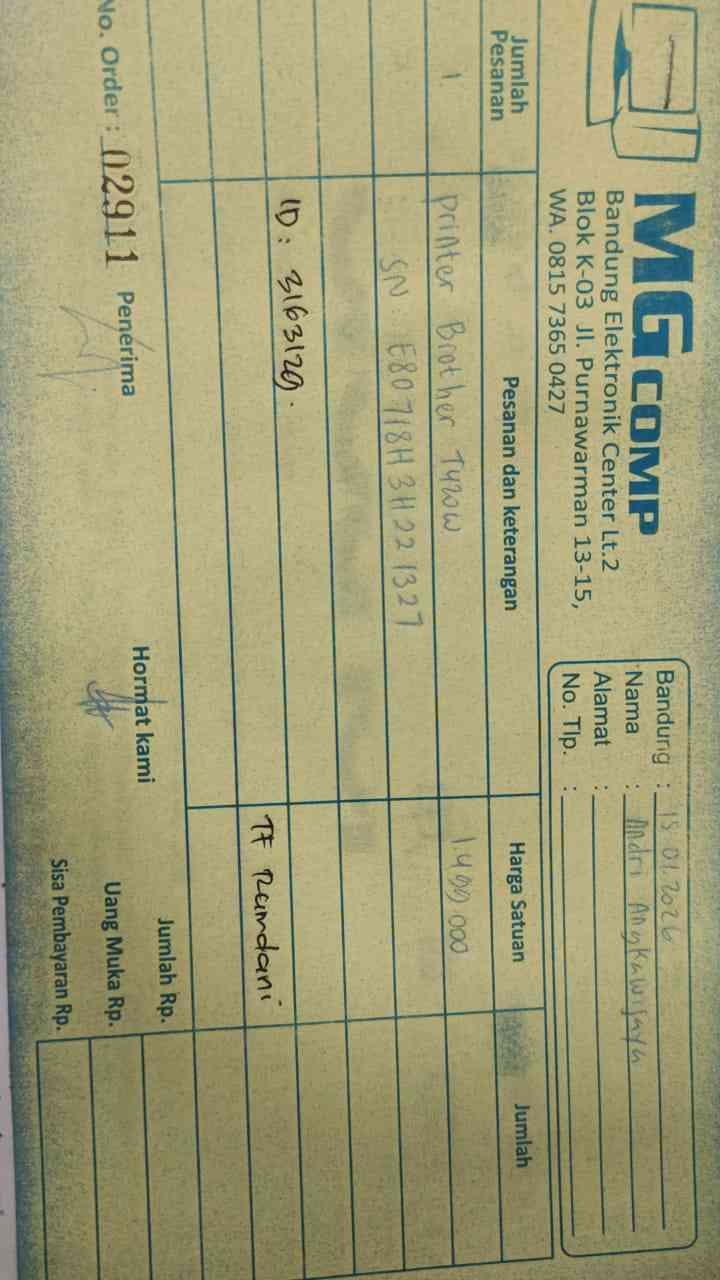 MG COMP
Bandung Elektronik Center Lt.2
Blok K-03 Jl. Purnawarman 13-15,
WA. 0815 7365 0427
Bandung : 15.01.2026
Nama : Andri Angkawijaya
Alamat :
No. Tlp. :
Jumlah Pesanan
Pesanan dan keterangan
Harga Satuan
Jumlah
1 printer Brother T420W 1.499.000
SN : E80718H3H221327
ID : 3163129.
TF Ramdani
No. Order : 02911
Penerima
Hormat kami
Jumlah Rp.
Uang Muka Rp.
Sisa Pembayaran Rp.